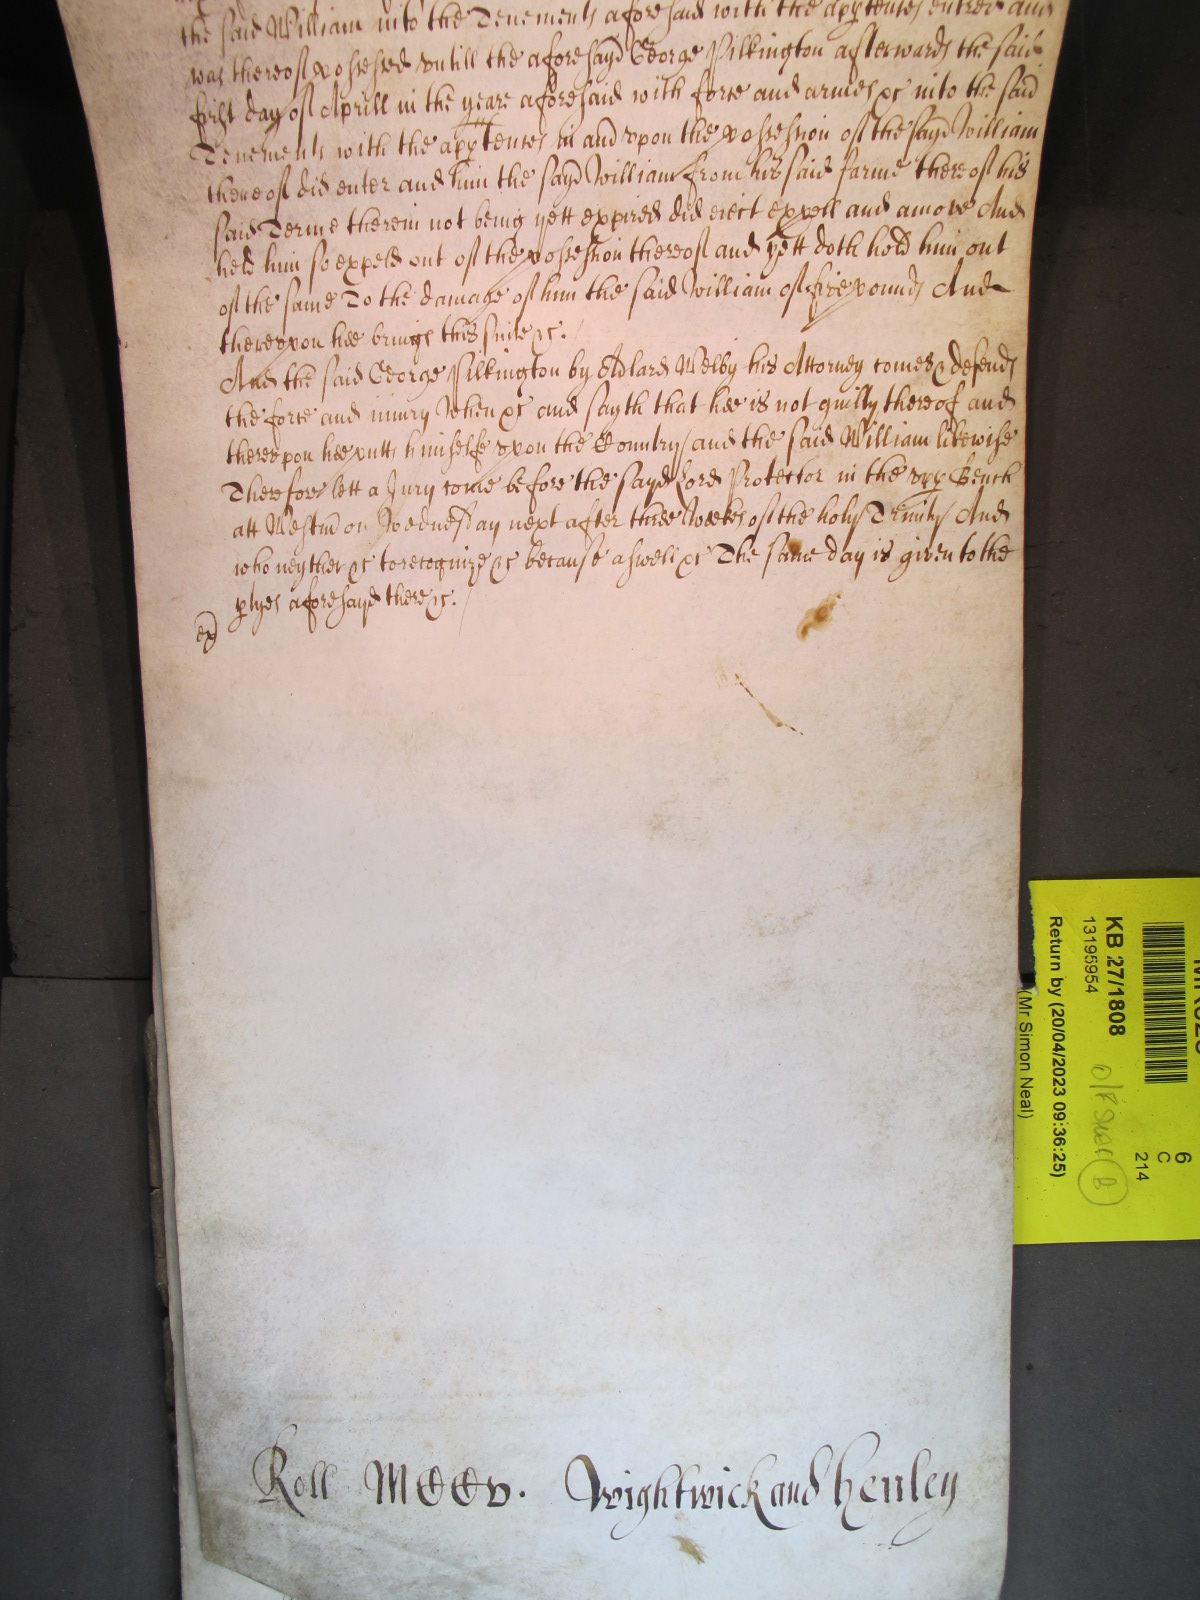 the said William into the Tenements aforesaid with the apptences entred and
was thereof possessed vntill the aforesayd George Pilkington afterwards the said
first day of Aprill in the yeare aforesaid with force and armes &c into the said
Tenements with the apptences in and vpon the possession of the sayd William
thereof did enter and him the sayd William from his said farme thereof his
said Terme therein not being yett expired did eiect expell and amove And
held him so expeld out of the possession thereof and yett doth hold him out
of the same To the damage of him the said William of five pounds And
therevpon hee brings this suite &c.
And the said George Pilkington by Adlard Welby his Attorney comes & defends
the force and iniury When &c and sayth that hee is not guilty thereof and
therevpon hee putts himselfe vpon the Country and the said William likewise
Therefore lett a Jury come before the sayd Lord Protector in the vpp Bench
att Westm on Wednesday next after three weekes of the holy Trinity And
who neyther &c to recognize &c because aswell &c The same day is given to the
ptyes aforesayd there &c.
Roll MCCv. Wightwick and Henley
KB 27/1808
13195954
Return by (20/04/2023 09:36:25)
(Mr Simon Neal)
6
C
214
B